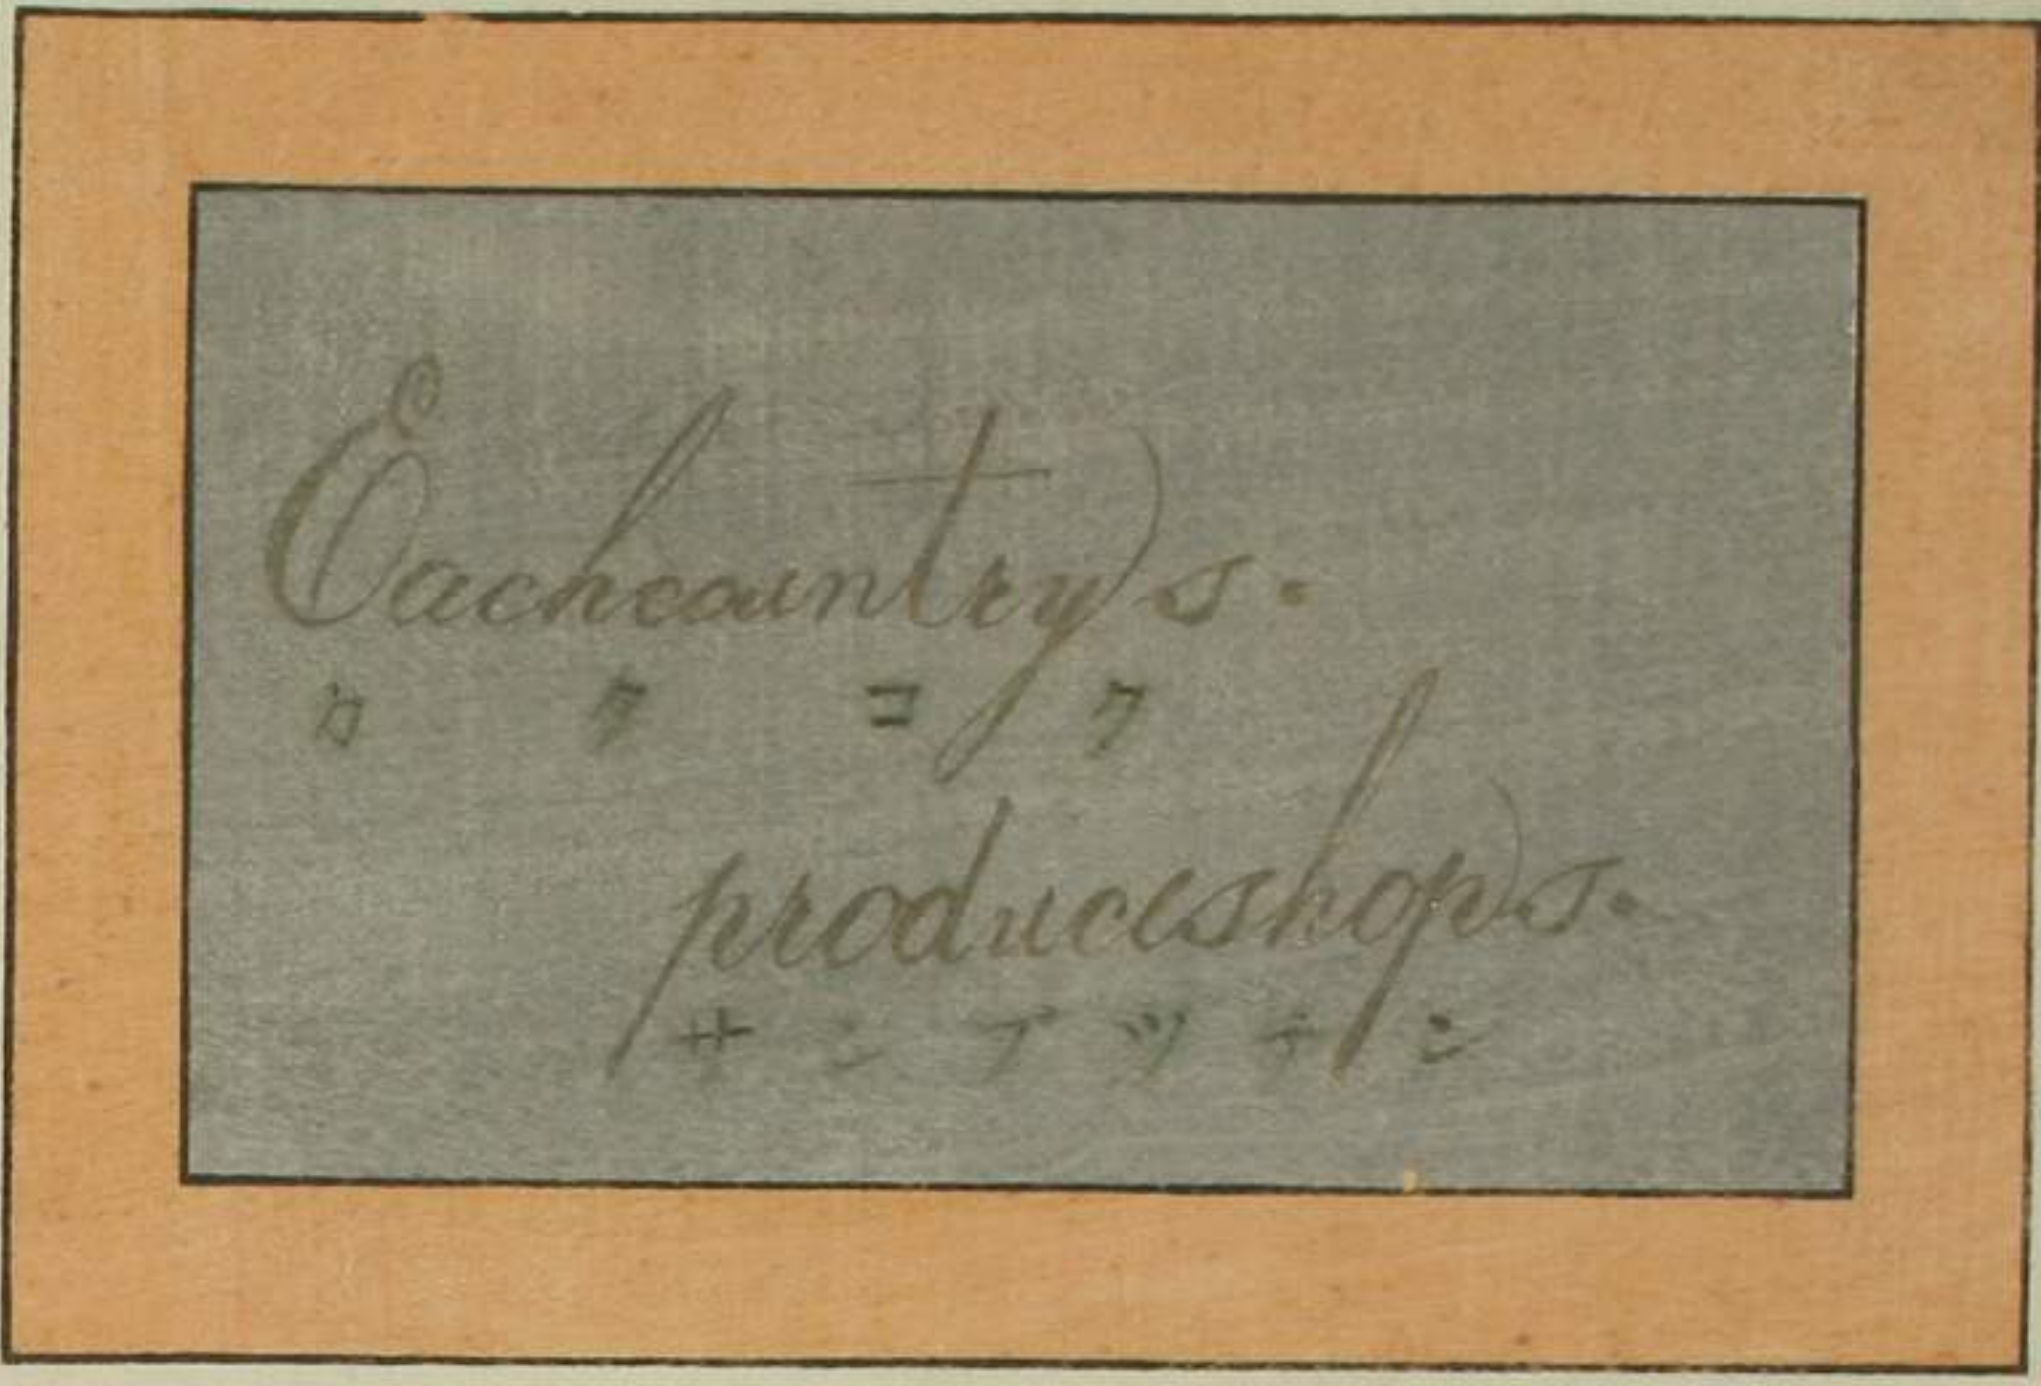 Eachcountrys.
カクコク
produceshops.
サンブツテン